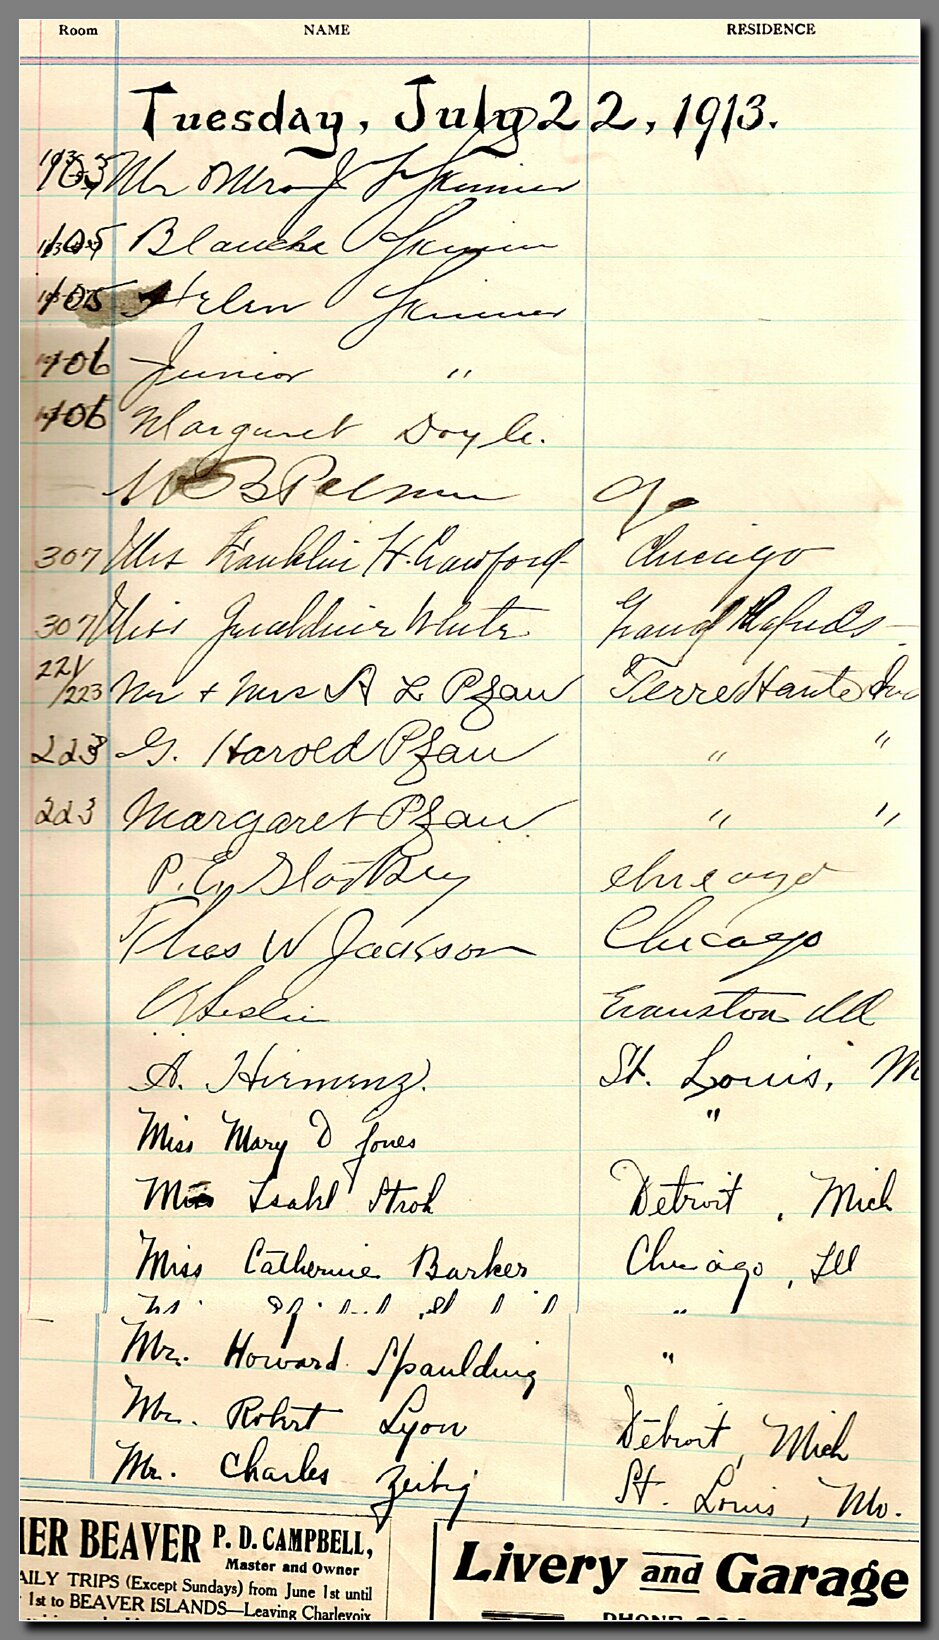 Room NAME RESIDENCE
Tuesday, July 22, 1913.
105 Mr & Mrs J F Skinner
105 Blanche Skinner
105 Helen Skinner
106 Junior "
106 Margaret Doyle.
B
307 Mrs Franklin H. Crawford Chicago
307 Miss Geraldine White Grand Rapids
221/223 Mr + Mrs A L Pfau Terre Haute Ind
223 G. Harold Pfau " "
223 Margaret Pfau " "
P. Chicago
Thos W Jackson Chicago
Leslie Evanston Ill
A. Hirmenz. St. Louis, M
Miss Mary D Jones "
Miss Isabel Stroh Detroit, Mich
Miss Catherine Barker Chicago, Ill
"
Mr. Howard Spaulding "
Mr. Robert Lyon Detroit, Mich
Mr. Charles Zeibig St. Louis, Mo.
MER BEAVER P. D. CAMPBELL,
Master and Owner
AILY TRIPS (Except Sundays) from June 1st until
1st to BEAVER ISLANDS—Leaving Charlevoix
Livery and Garage
PHONE